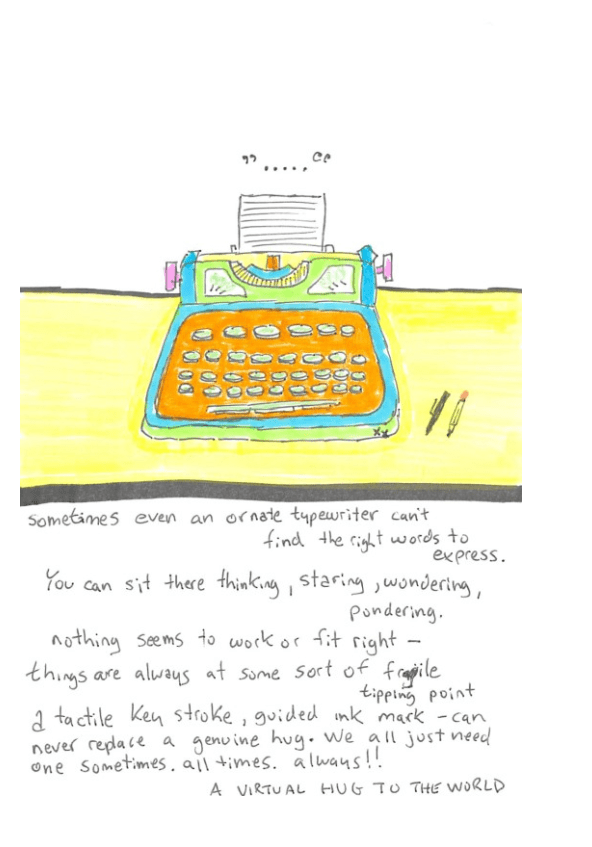 " ..... "
sometimes even an ornate typewriter can't
find the right words to
express.
You can sit there thinking, staring, wondering,
pondering.
nothing seems to work or fit right –
things are always at some sort of fragile
tipping point
a tactile key stroke, guided ink mark – can
never replace a genuine hug. We all just need
one sometimes. all times. always!!
A VIRTUAL HUG TO THE WORLD
xx